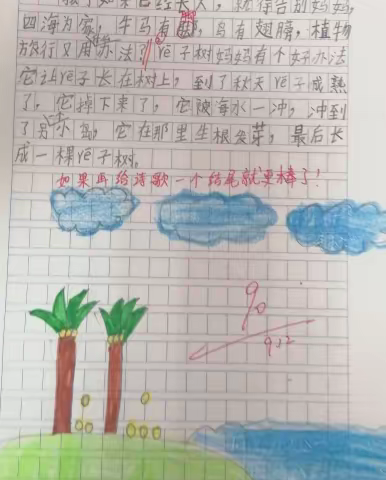 孩子如果已经长大，就得告别妈妈，
四海为家，牛马有脚，鸟有翅膀，植物
旅行又用办法？yē子树妈妈有个好办法
它让yē子长在树上，到了秋天yē子成熟
了，它掉下来了，它被海水一冲，冲到
了岛，它在那里生根发芽，最后长
成一棵yē子树。
如果再给诗歌一个结尾就更棒了！
90
9.12